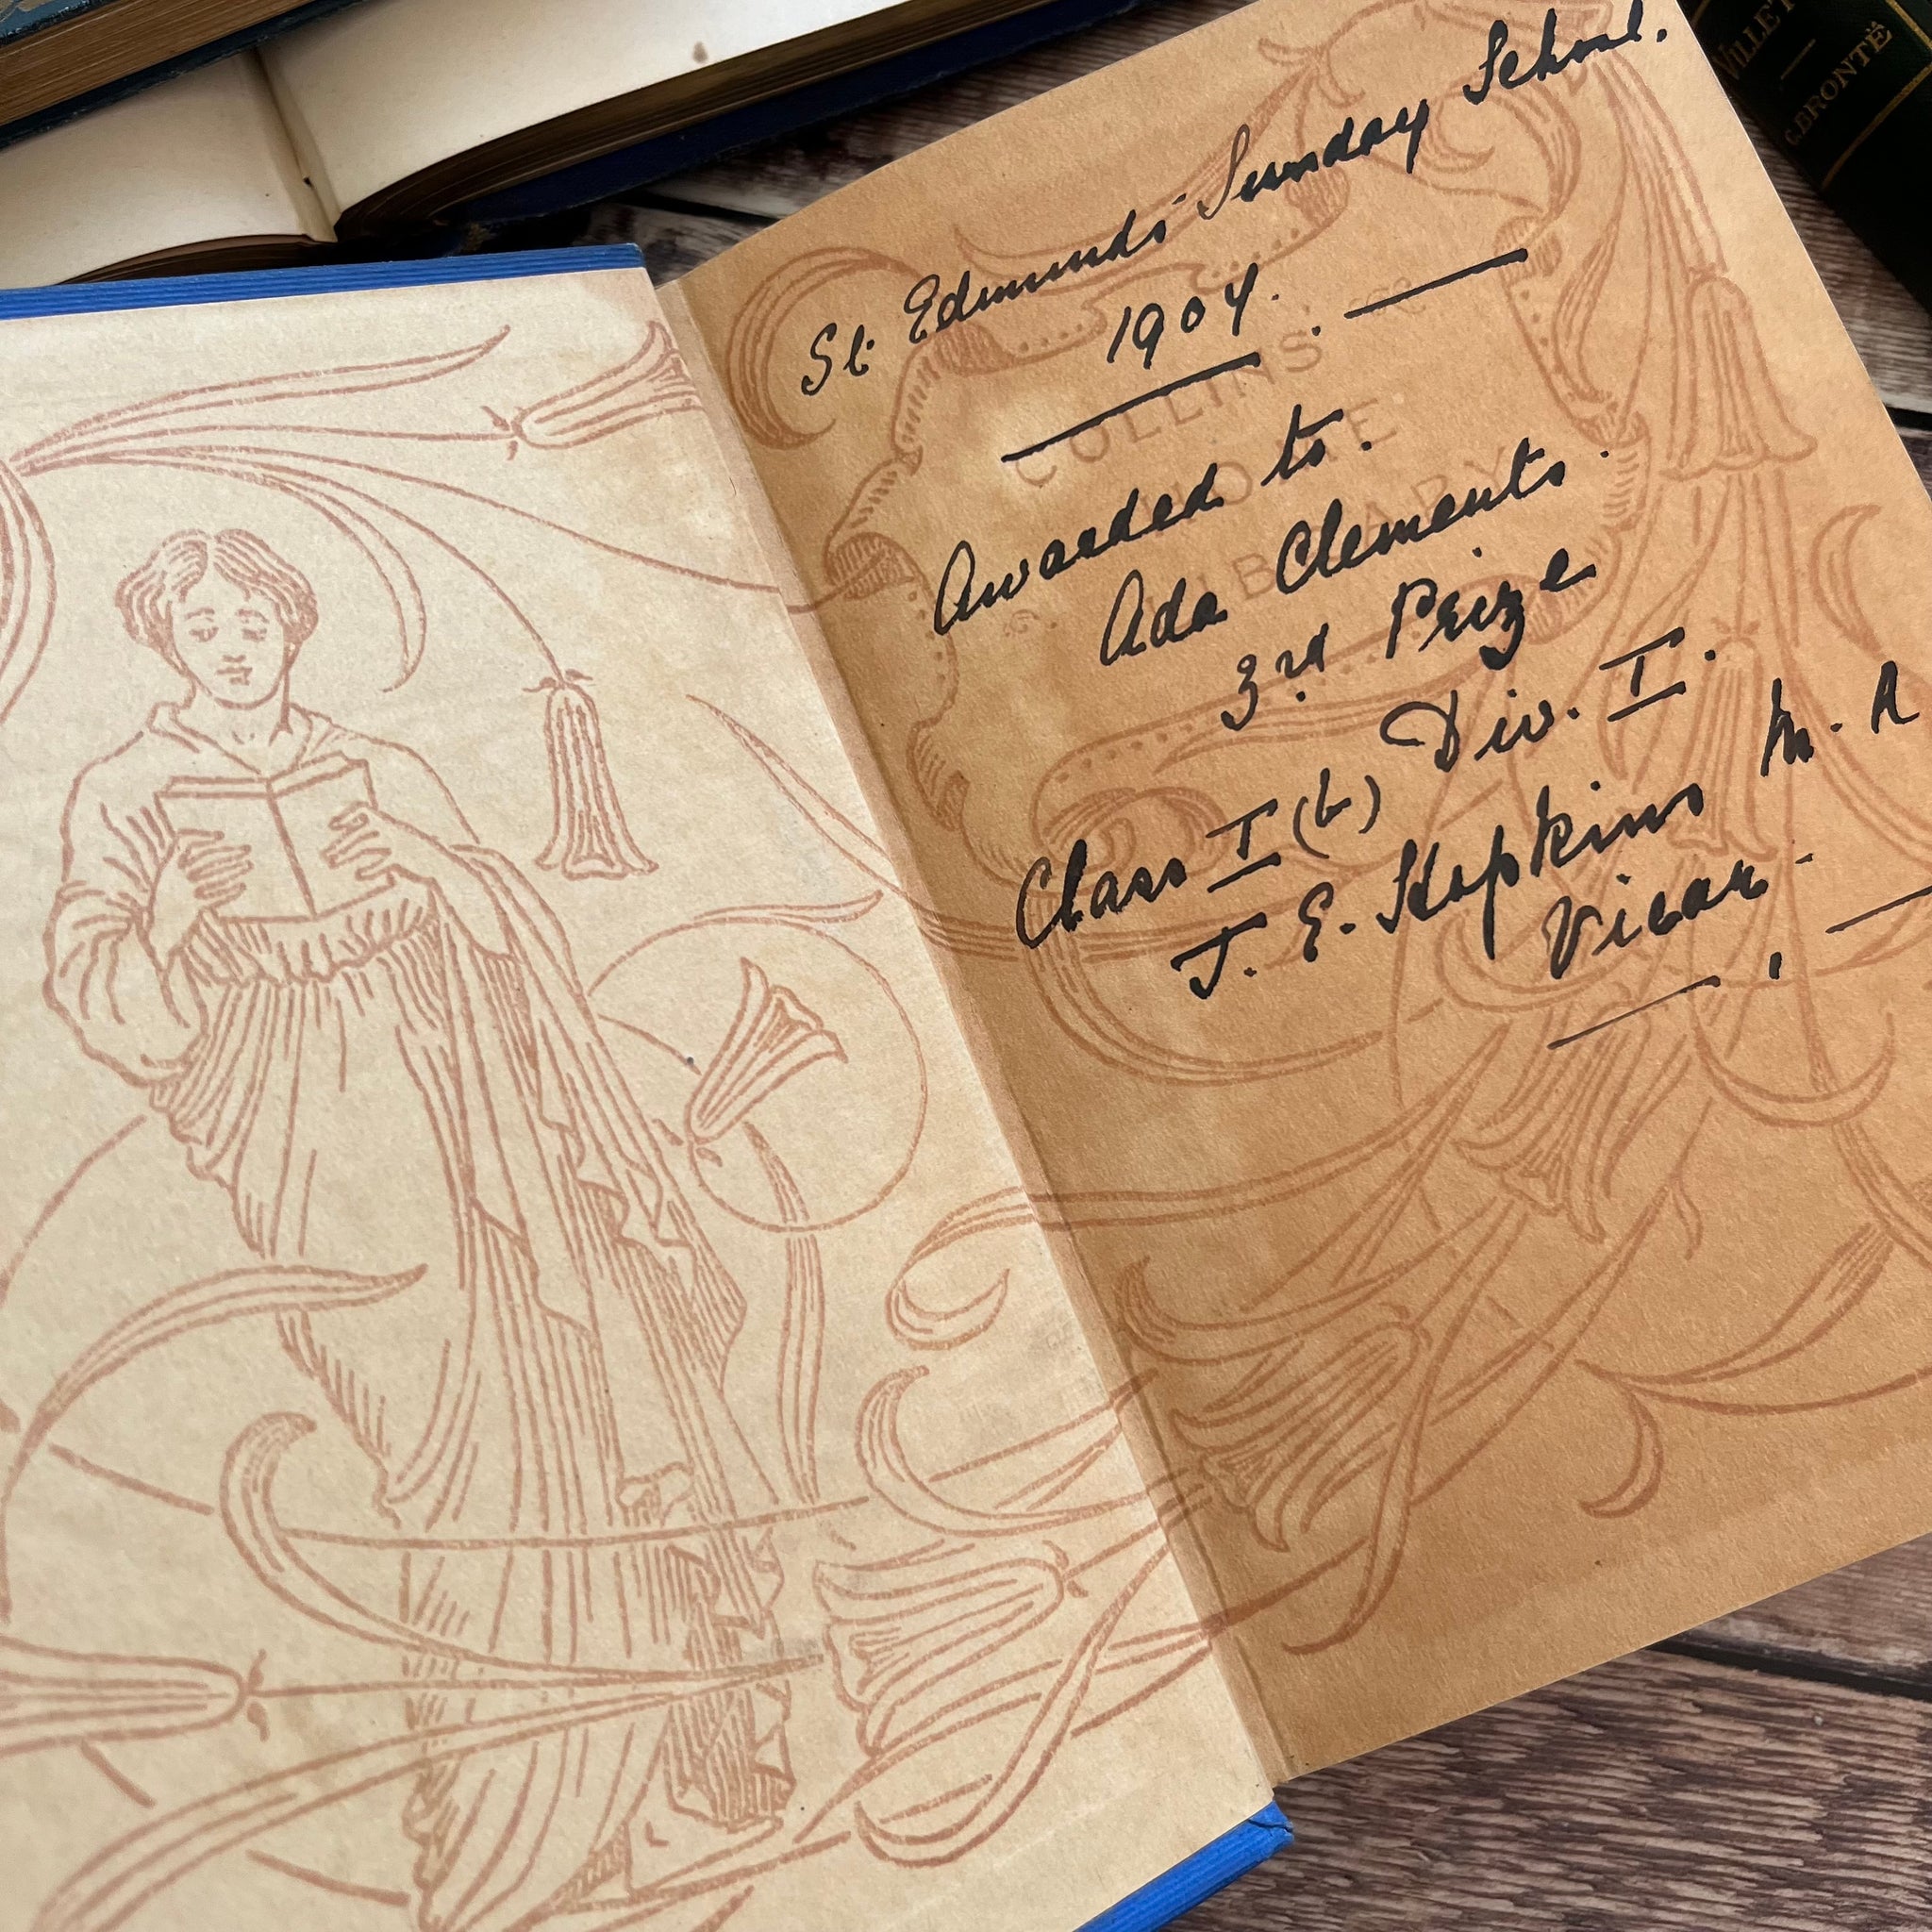 St. Edmunds' Sunday School.
1904.
Awarded to.
Ada Clements.
3rd Prize
Class I (b) Div. I.
J. E. Hopkins M. A
Vicar.
COLLINS
LIBRARY
VILLET
C. BRONTË